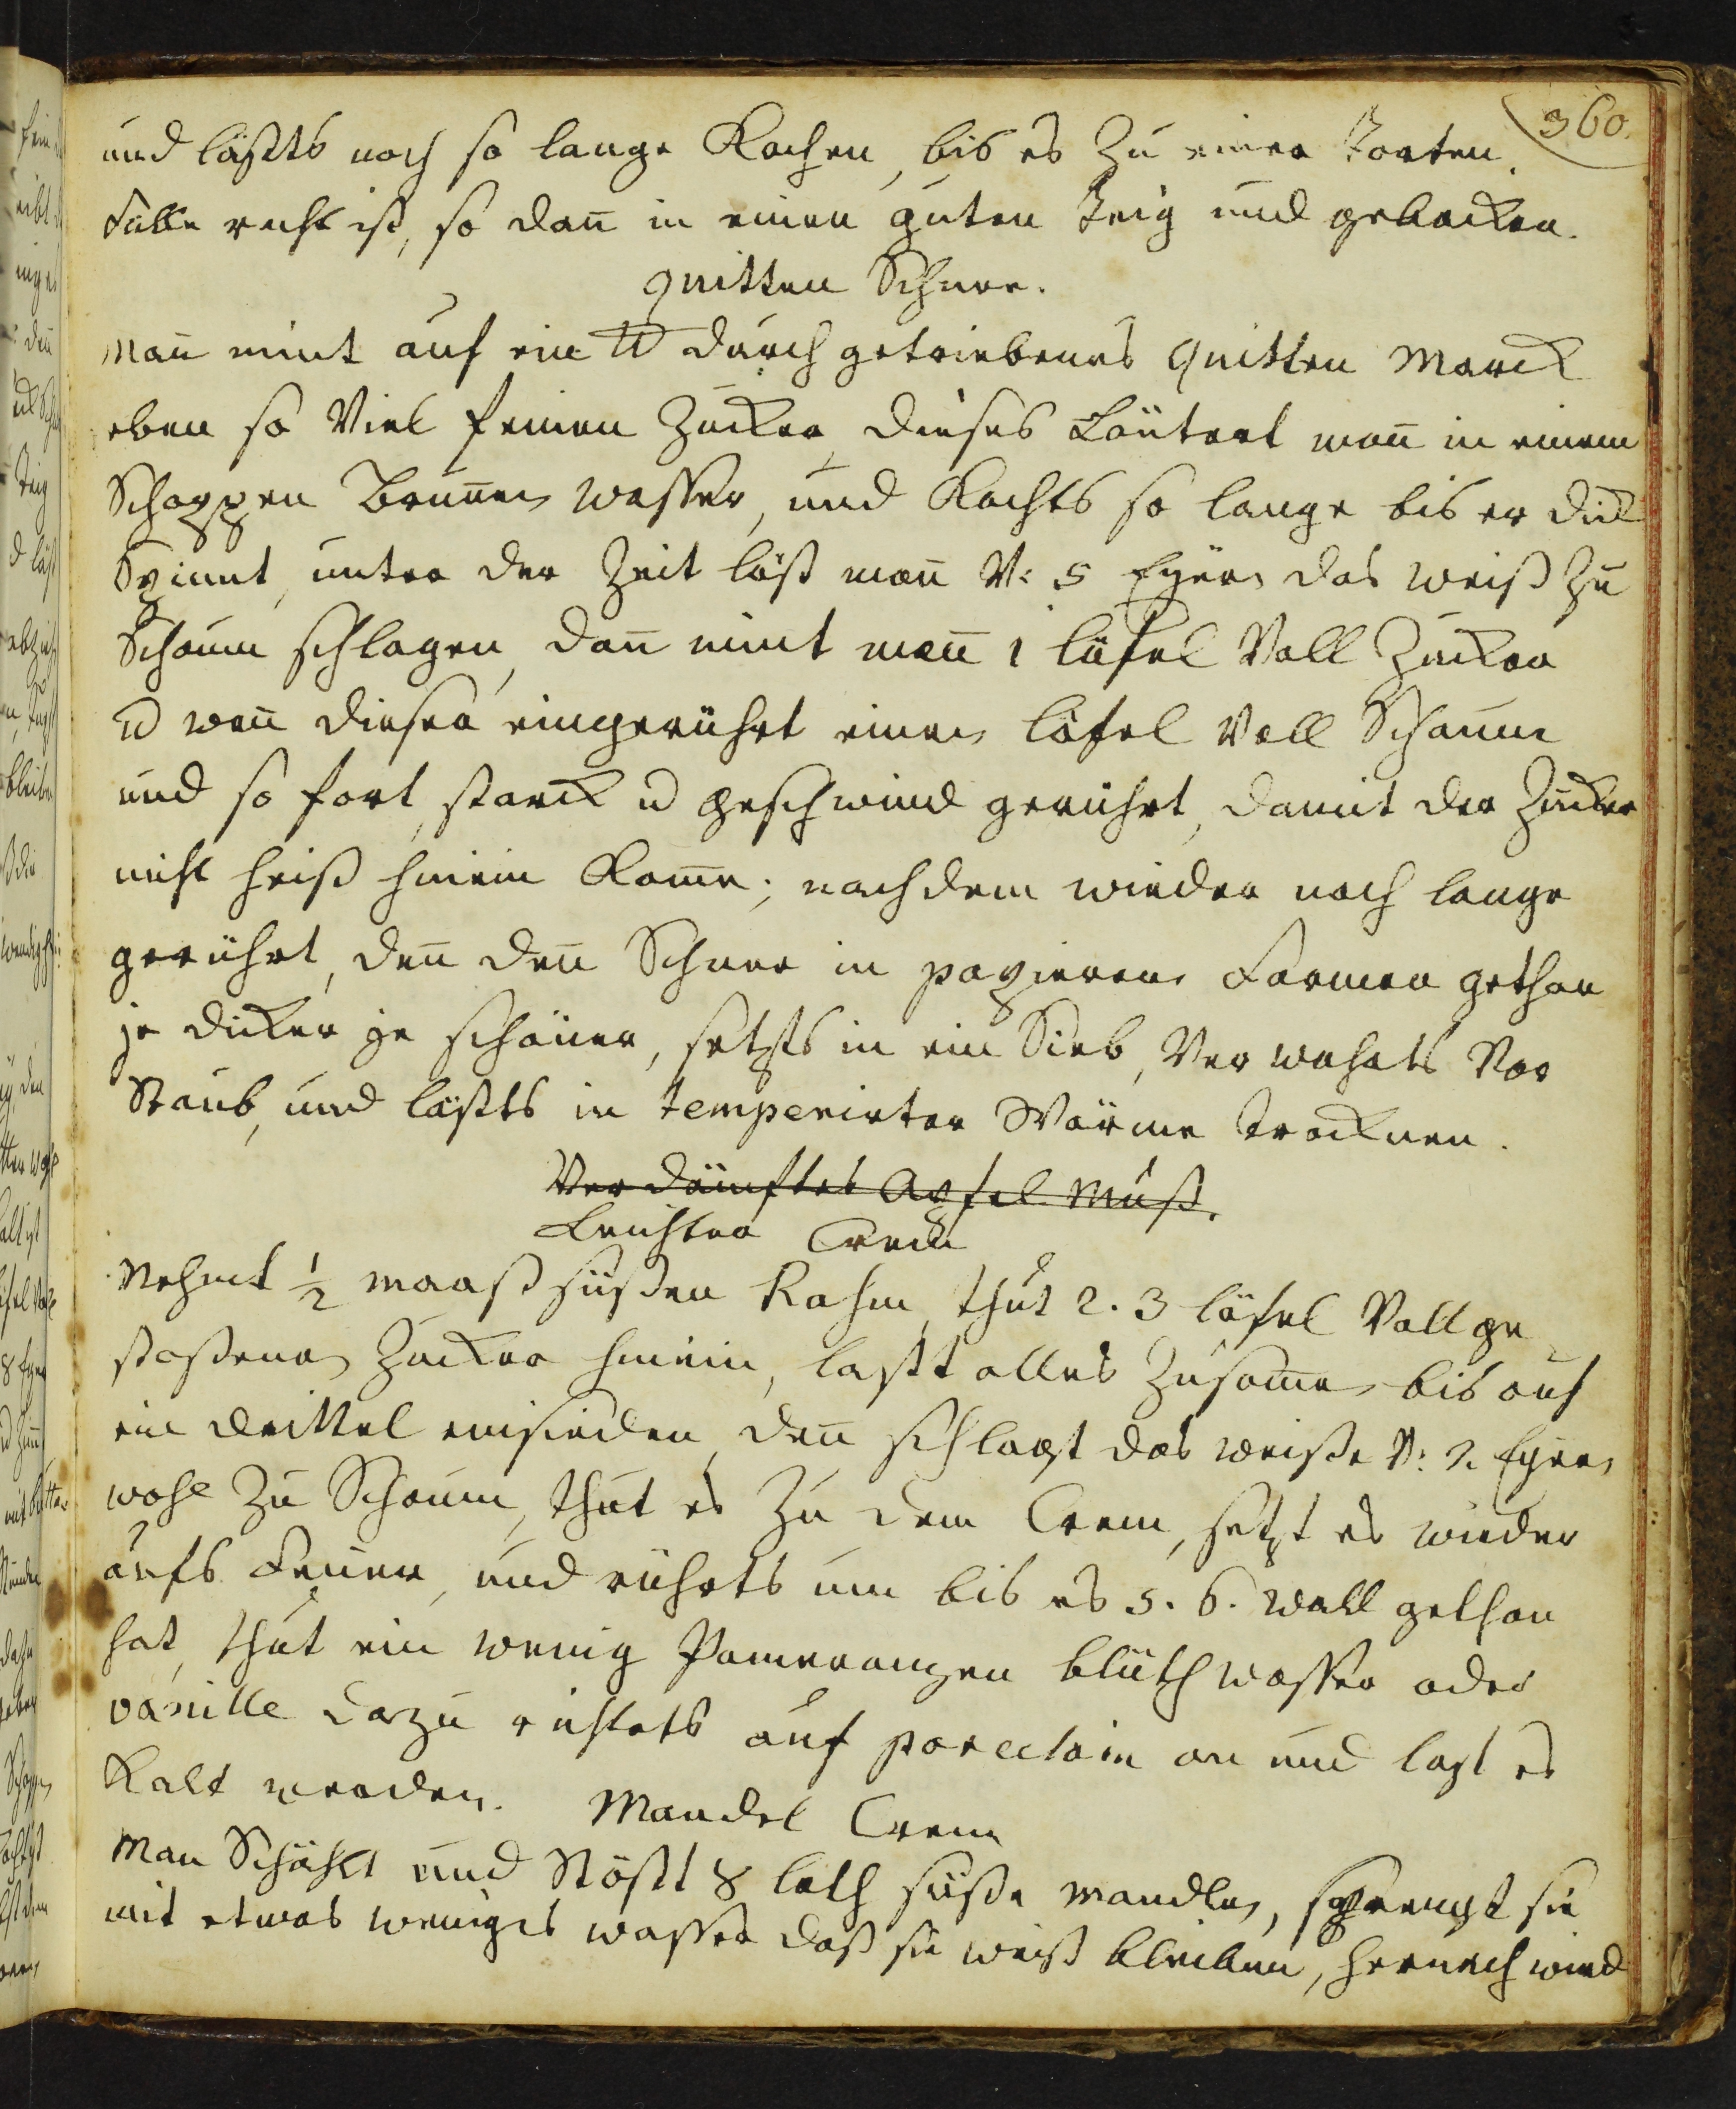 360.
und läßts noch so lange Kochen, bis es zu einer Torten
Fülle recht ist, so dañ in einen guten Teig und gebacken.
quitten Schnee.
Mañ nimt auf ein ℔ durch getriebenes quitten Marck
eben so Viel feinen Zucker, dieses Läutert mañ in einem
Schoppen Bruñen wasser, und Kochts so lange bis er dick
Spinnt, unter der Zeit läst mañ V: 5 Eyern das weiß zu
Schaum schlagen, dañ nimt mañ 1 löfel Voll Zucker
u wañ dieser eingerührt einen löfel Voll Schaum
und so fort, starck u geschwind gerührt, damit der Zucker
nicht heiß hinein Kom̄e; nachdem wieder noch lange
gerührt, deñ deñ Schnee in papierene Formen gethan
je dicker je schöner, setzts in ein Sieb, Verwahrts Vor
Staub, und läßts in temperirter Wärme trocknen.
Verdämftes Apfel Muß.
Leichter Crem
Nehmt ½ maaß süßen Rahm, thut 2. 3 löfel Voll ge
stoßenen Zucker hinein, laßt alles Zusam̄en bis auf
ein drittel einsieden, deñ schlagt das weiße V: 2. Eyern
wohl zu Schaum, thut es zu dem Crem, setzt es wieder
aufs Feuer, und rührts um bis es 5. 6. Wall gethan
hat, thut ein wenig Pomeranzen blüth wasser oder
vanille dazu richtets auf porcelain an und last es
Kalt werden. Mandel Crem
Man Schählt und Stößt 8 loth süße mandlen, sprengt sie
mit etwas weniges wasser daß sie weiß bleiben, hernach wird